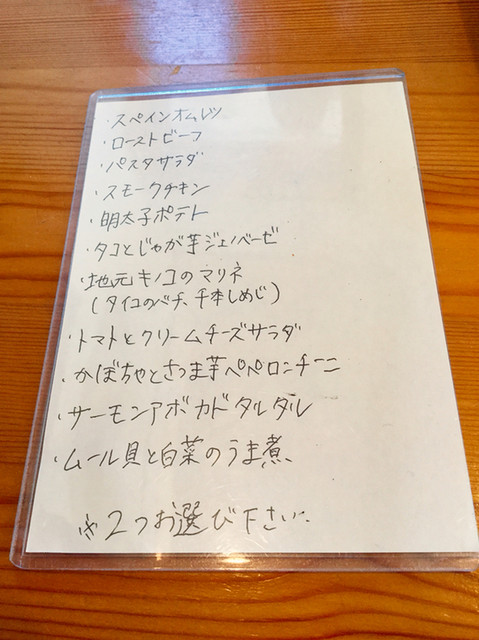 ・スペインオムレツ
・ローストビーフ
・パスタサラダ
・スモークチキン
・明太子ポテト
・タコとじゃが芋ジェノベーゼ
・地元キノコのマリネ
(タイコのバチ、千本しめじ)
・トマトとクリームチーズサラダ
・かぼちゃとさつま芋ペペロンチーニ
・サーモンアボカドタルタル
・ムール貝と白菜のうま煮
※2つお選び下さい。